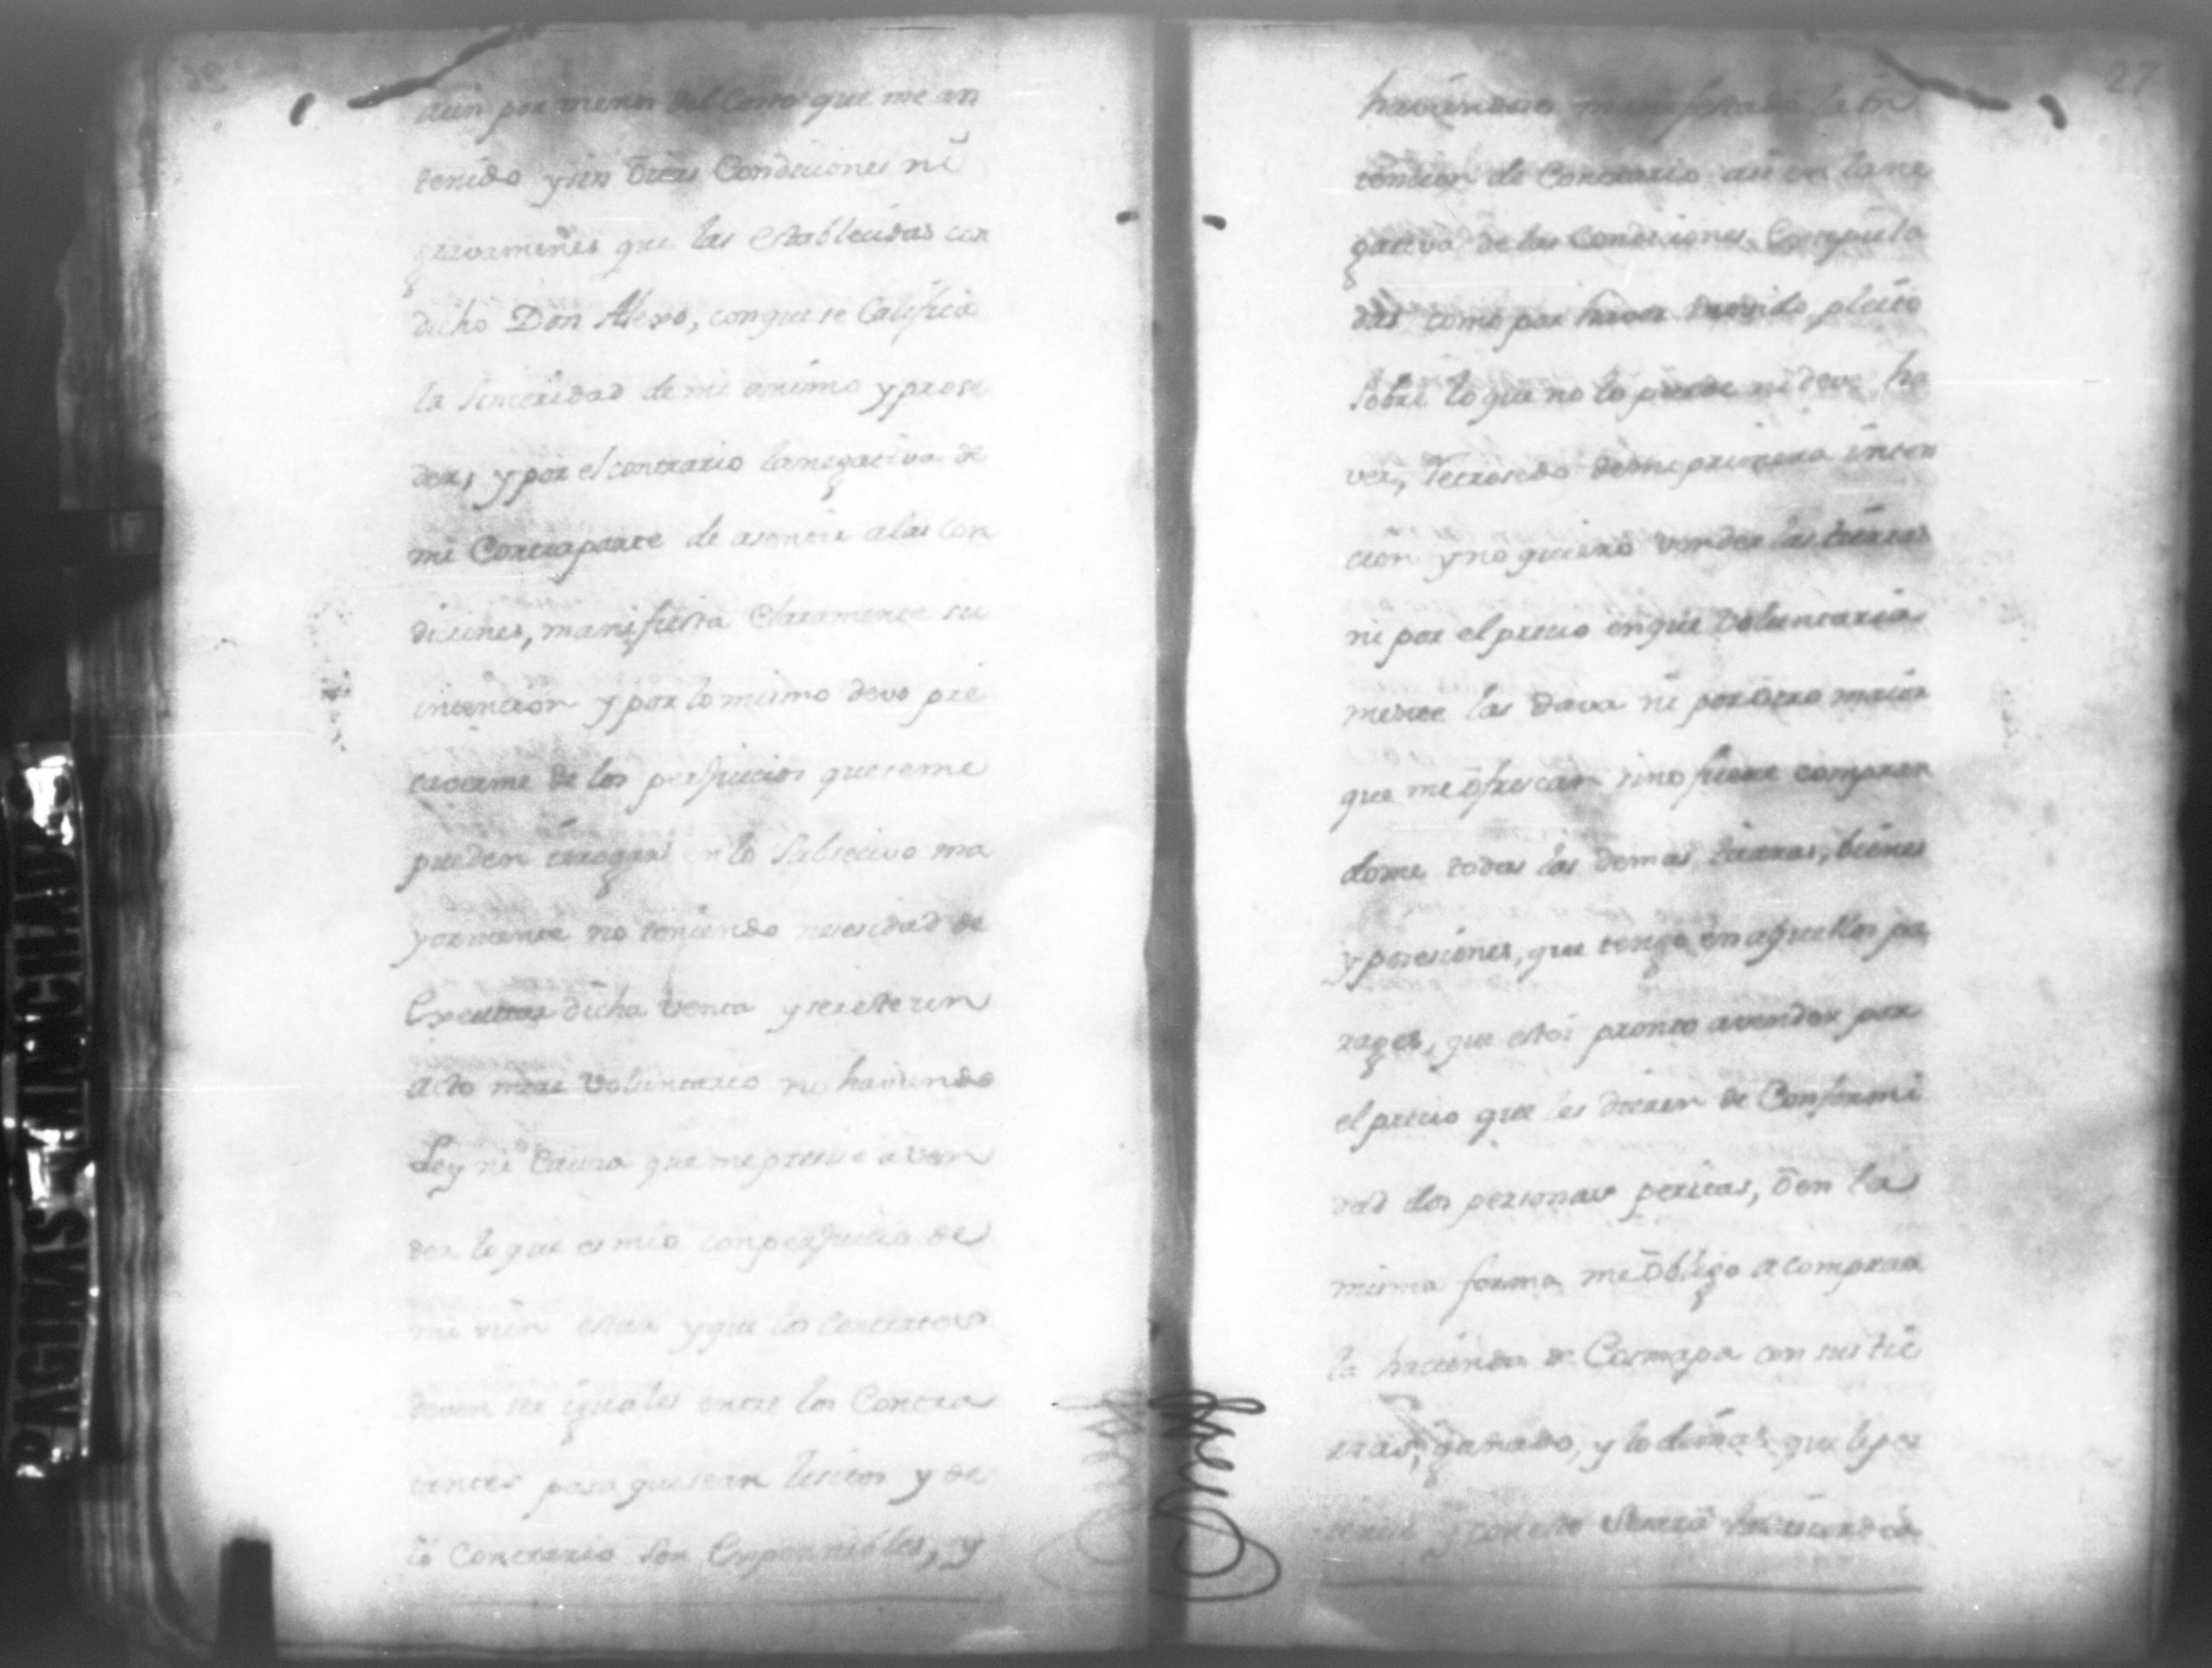 aun por menos del Costo que me an
tenido y sin otras Condiciones ni
gravamenes que las establecidas con
dicho Don Alexo, con que se Califica
la Sinceridad de mi animo y prose
der, y por el contrario la negativa de
mi Contraparte de asentir a las Con
diciones, manifiesta Claramente su
intencion y por lo mismo devo pre
cavirme de los perjuicios que se me
pueden irrogar en lo Subsecivo ma
yormente no teniendo necesidad de
Executar dicha Venta y ser este un
acto mere Voluntario ni haviendo
Ley ni Causa que me presise a ven
der lo que es mio con perjuicio de
mi vien estar y que los Contratos
deven ser iguales entre los Contra
tantes para que sean lisitos y de
lo Contrario son
haviendose manifestado la in
tencion de Contrario asi en la ne
gativa de las Condiciones Estipula
das como por haver movido pleito
Sobre lo que no lo puede ni deve ha
ver, Retrosedo de mi primera inten
cion y no quiero vender las tierras
ni por el precio en que Voluntaria
mente las dava ni por otro maior
que me ofrescan sino fuere compran
dome todas las demas tierras, bienes
y posesiones, que tengo en aquellos pa
rages, que estoi pronto a vender por
el precio que les dieren de Conformi
dad dos personas peritas, o en la
misma forma me obligo a comprar
la hacienda de Cosmapa con sus tie
rras, ganado, y lo demas que le per
27
PAGINAS MANCHADAS